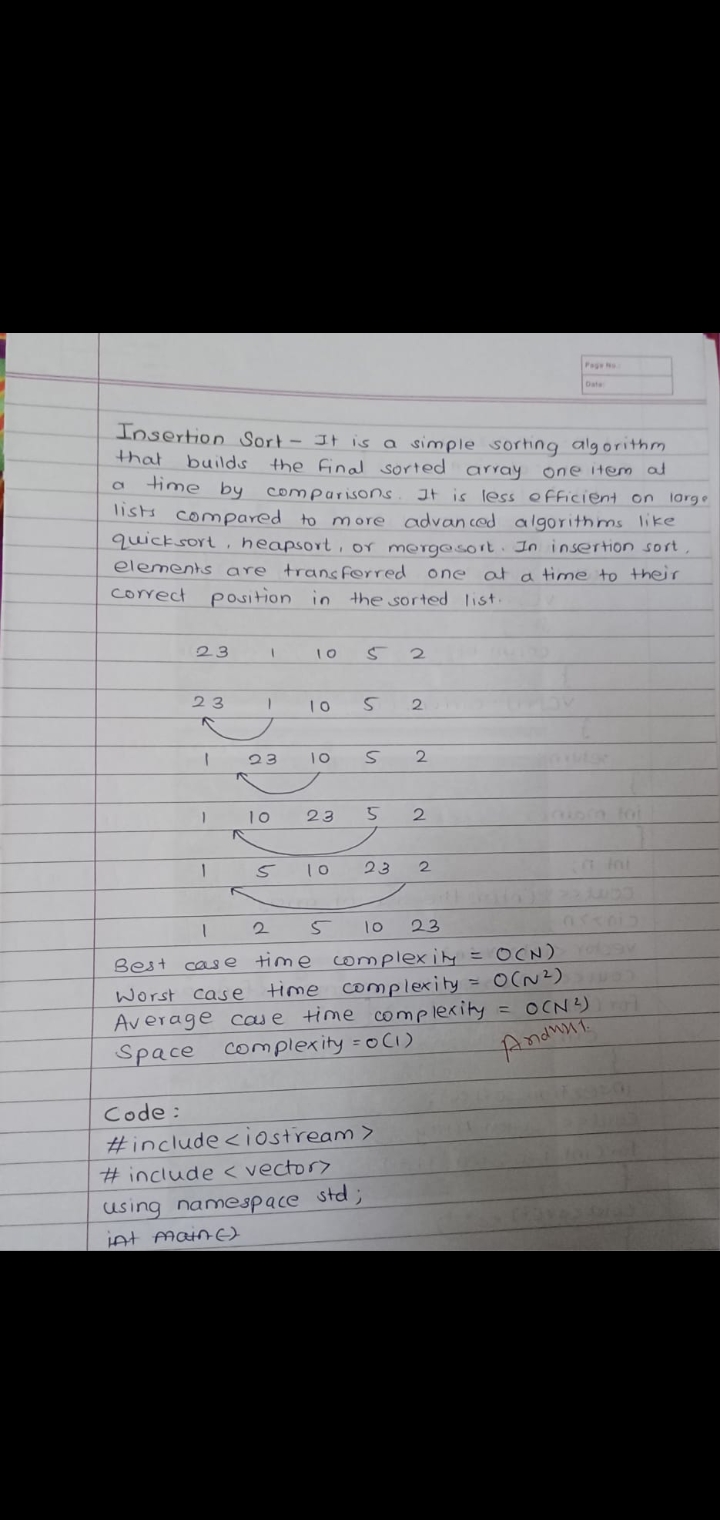 Page No.:
Date:
Insertion Sort - It is a simple sorting algorithm
that builds the final sorted array one item at
a time by comparisons. It is less efficient on large
lists compared to more advanced algorithms like
quicksort, heapsort, or mergesort. In insertion sort,
elements are transferred one at a time to their
correct position in the sorted list.
23 1 10 5 2
23 1 10 5 2
1 23 10 5 2
1 10 23 5 2
1 5 10 23 2
1 2 5 10 23
Best case time complexity = O(N)
Worst case time complexity = O(N²)
Average case time complexity = O(N²)
Space complexity = O(1)
Code:
#include<iostream>
#include <vector>
using namespace std;
int main()